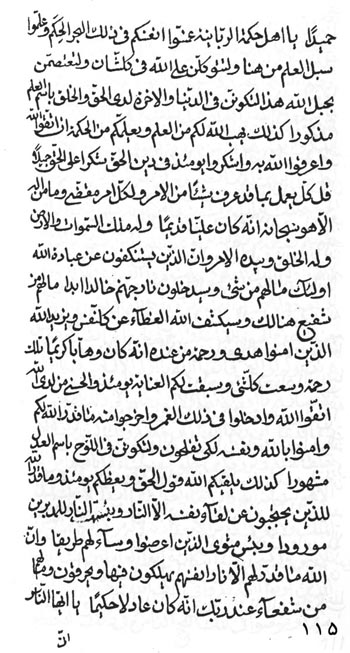 حميدًا يا اهل حكمة الربانية عنّوا انفسكم في ذلك البحر الحكم وعلّموا
سبل العلم من هنا ولتتوكلن على الله في كلشأن ولتعتصمن
بحبل الله هذا لتكونن في الدنيا والاخرة لدى الحق والخلق باسم العلم
مذكورا كذلك يهب الله لكم من العلم ويعلمكم من الحكمة ان اتقوا الله
واعرفوا الله به واشكروا يومئذ في دين الحق شكرا على الحق جميلا
قل كل يعمل بما قد عرف شيئا من الامر ولكل امره مفضى وما من اله
الا هو سبحانه انه كان عليّا قديمًا وله ملك السموات والارض
وله الخلق وبيده الامر وان الذين يستنكفون عن عبادة الله
اولئك مالهم من شئ وسيدخلون نار جهنم خالدا ابدا مالهم من
شفيع هنالك وسيكشف الله الغطاء عن كلنفس ويزيد الله
الذين امنوا هدى ورحمة من عنده انه كان وهابا كريما تلك
رحمة وسعت كلشئ وسبقت لكم العناية يومئذ والحسنى من لدى الله
اتقوا الله وادخلوا في ذلك الغمر واخرجوا منه ما قدر الله لكم
وامنوا بالله وبنفسه لكى تفلحون ولتكونن في اللوح باسم العدل
مشهورا كذلك يلقيكم الله قول الحق ويعظكم يومئذ وما قدر الله
للذين يحتجبون عن لقاء نفسه الا النار وبئس النار للمدبرين
مورودا وبئس مثوى الذين اعرضوا وساء لهم طريقا وان
الله ما قدر لهم الا نار انفسهم يهلكون فيها ويحرقون وما لهم
من شفعاء عند ربك انه كان عادلا حكيما يا ايها الناس
١١٥
ان